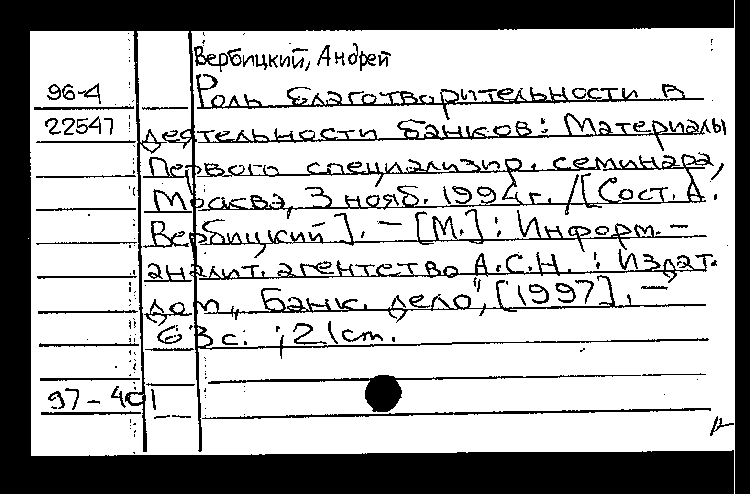 Вербицкий, Андрей
96-4 Роль благотворительности в
22547 деятельности банков: Материалы
Первого специализир. семинара,
Москва, 3 нояб. 1994 г. /[Сост. А.
Вербицкий]. - [М.]: Информ.-
аналит. агентство А.С.Н. : Издат.
дом „Банк. дело", [1997]. -
63 с. ; 21 cm.
97-401